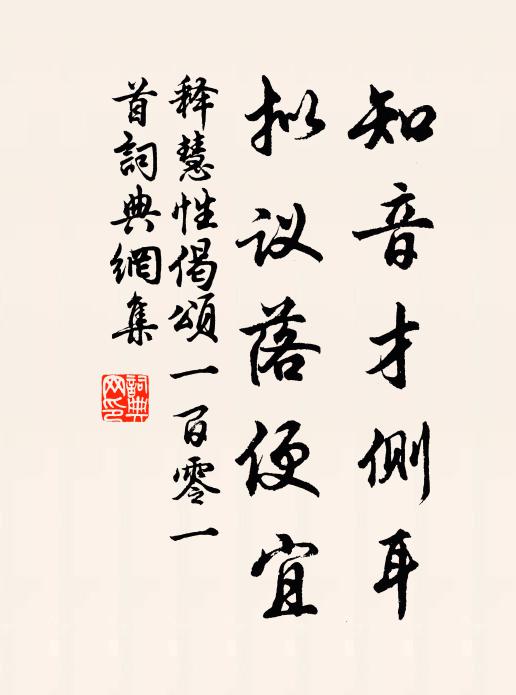 知音才侧耳
拟议落便宜
释慧性偈頌一百零一
首詞典網集
詞典網印